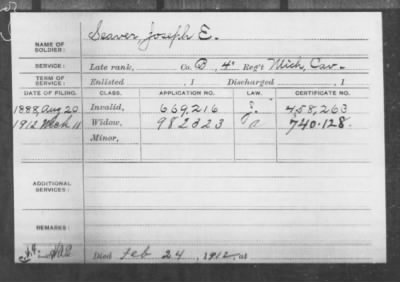 NAME OF SOLDIER: Seaver, Joseph E.
SERVICE: Late rank, Co. B, 4" Reg't Mich. Cav.
TERM OF SERVICE: Enlisted , 1 Discharged , 1
DATE OF FILING. CLASS. APPLICATION NO. LAW. CERTIFICATE NO.
1888, Aug 20 Invalid, 669,216 458,263
1912 Mch 11 Widow, 982323 a 740.128.
Minor,
ADDITIONAL SERVICES:
REMARKS:
Died Feb 24, 1912, at